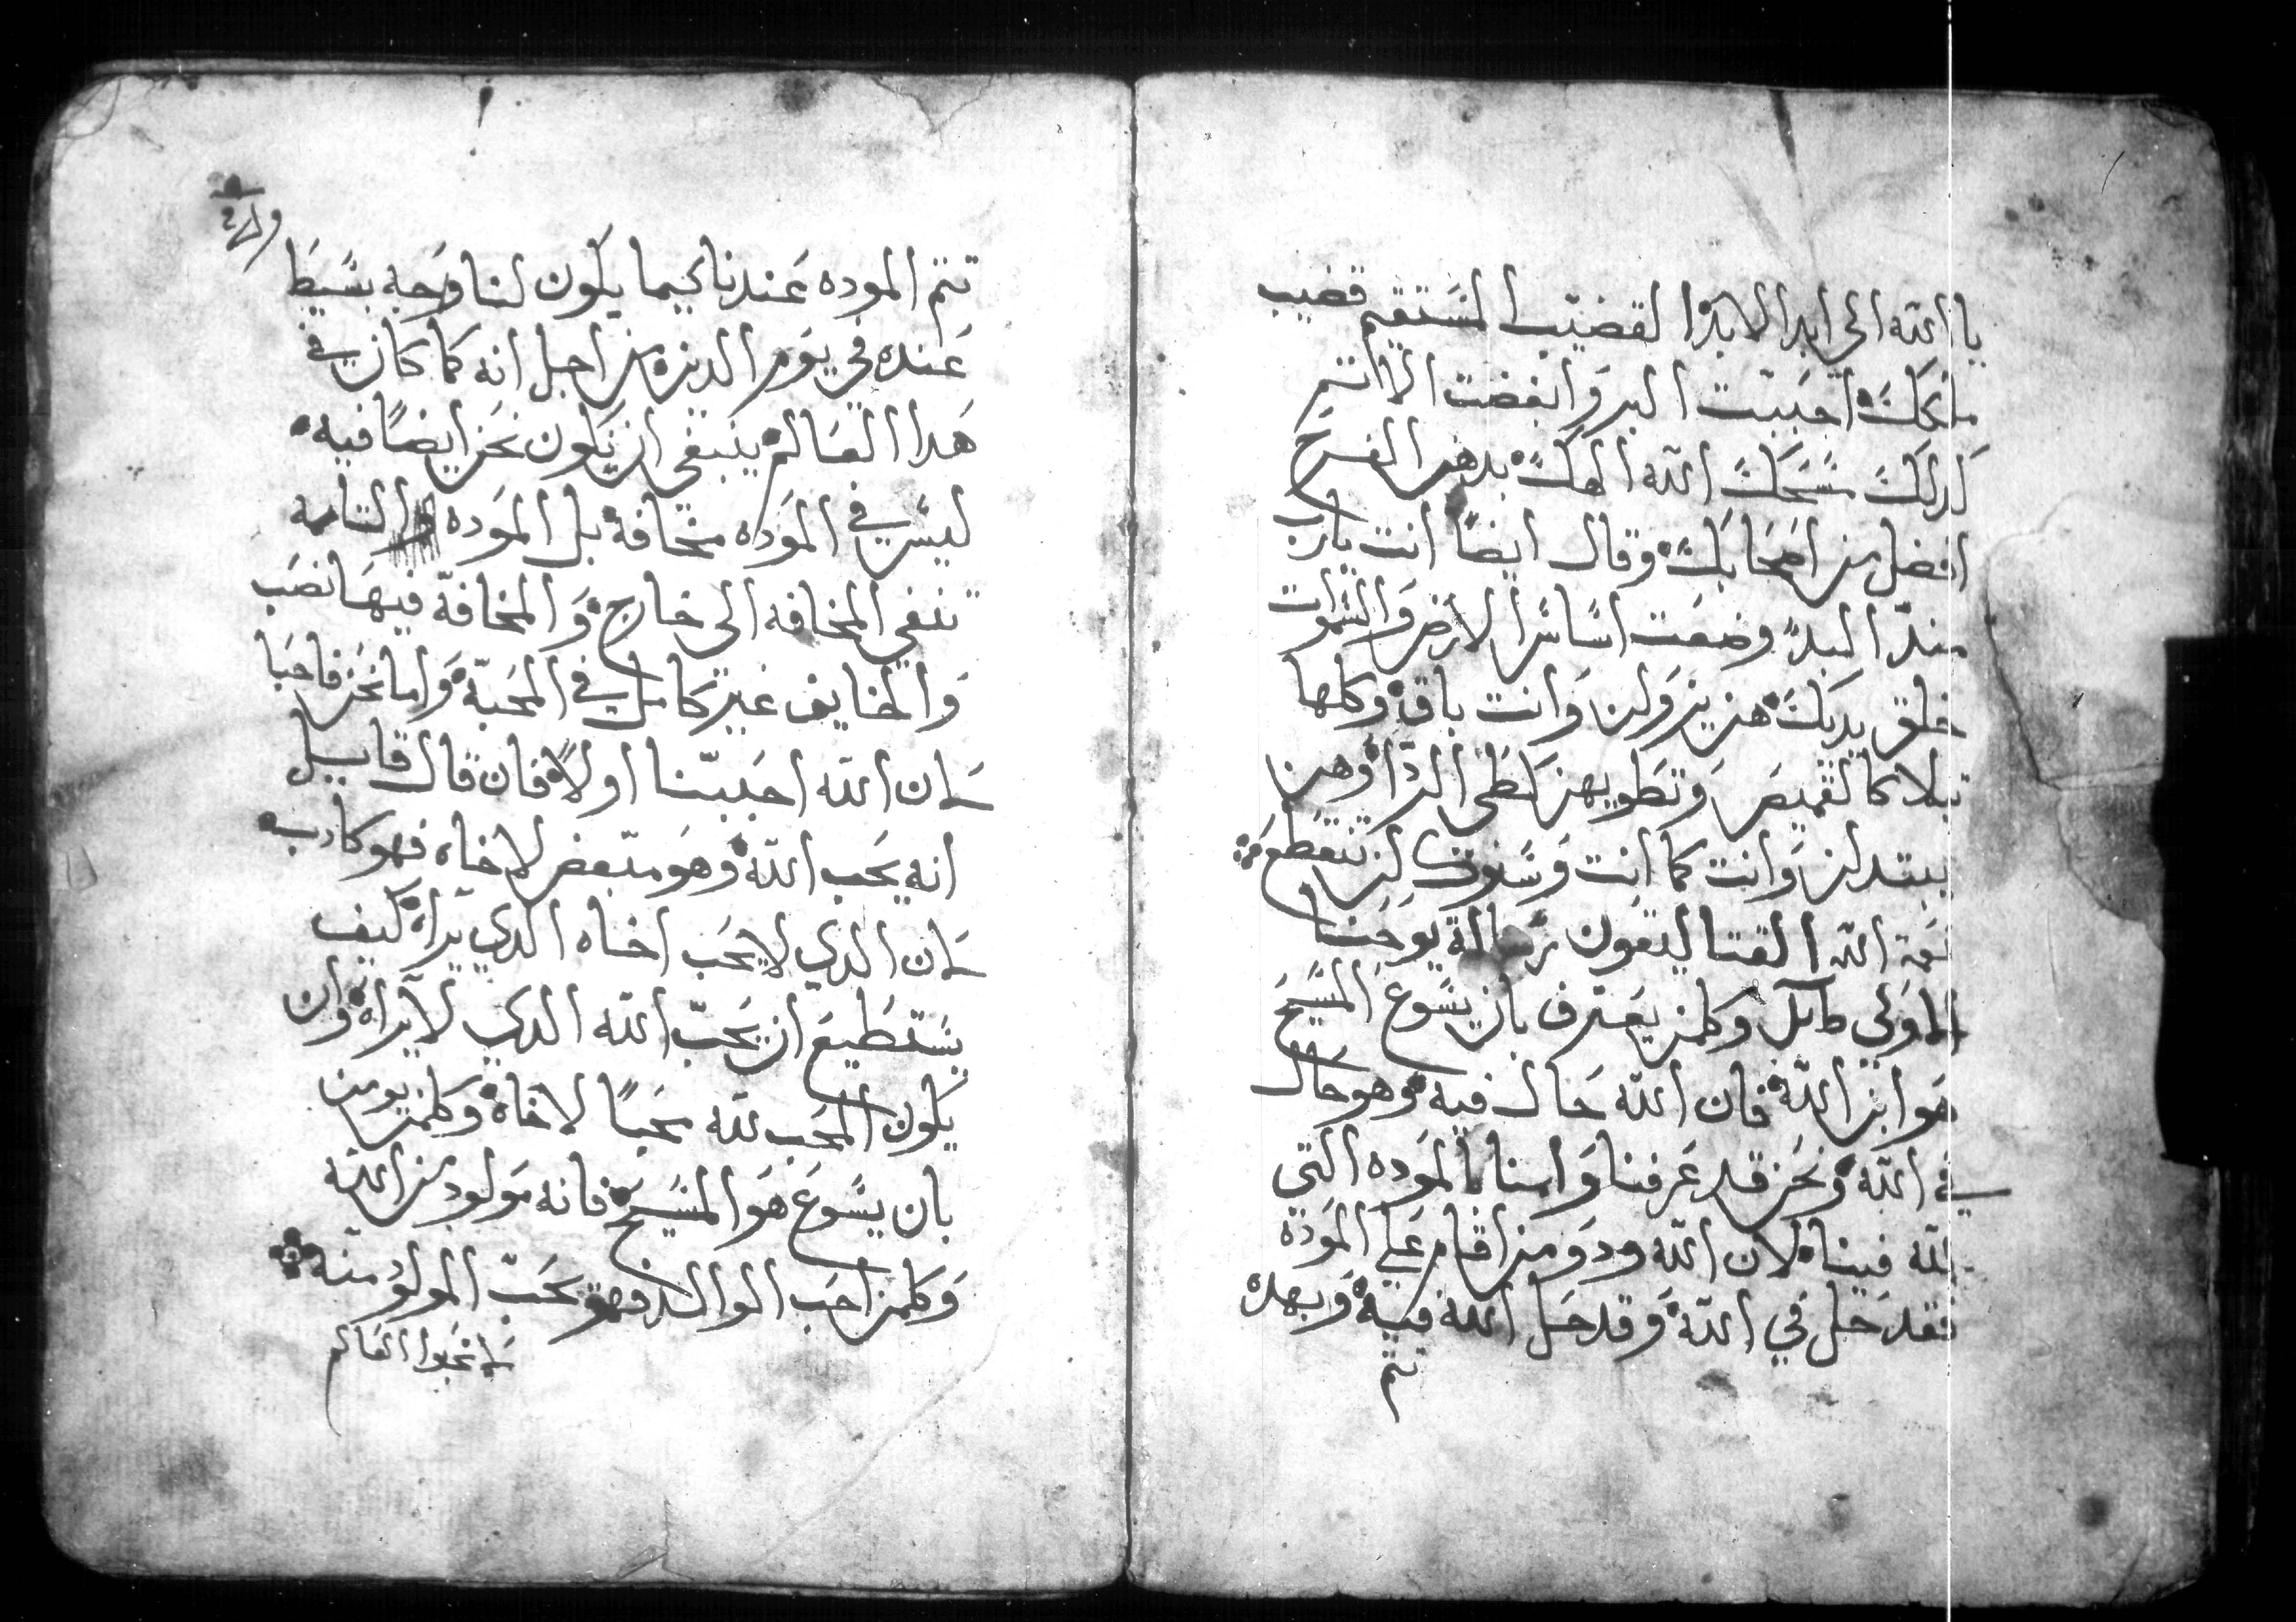 يا الله الى ابد الابد القضيب المستقيم قضيب
ملكك احببت البر وابغضت الاثم
كدلك مسحك الله الهك بدهن الفرح
افضل من اصحابك وقال ايضا انت يارب
مند البد وضعت اساس الارض والسموات
خلق يديك هن يزولن وانت باق وكلها
تبلا كالقميص وتطويهن كطي الردا وهن
يبتدلن وانت كما انت وسنوك لن تنقطع
نعمة الله القتاليقون رسالة يوحنا
الاولى وكلمن يعترف بان يسوع المسيح
هو ابن الله فان الله حال فيه وهو حال
في الله ونحن قد عرفنا وامنا بالموده التي
لله فينا لان الله ود ومن اقام على الموده
فقد حل في الله وقد حل الله فيه وبهده
تتم
تتم الموده عندنا كيما يكون لنا وجه بسيط
عنده في يوم الدين من اجل انه كما كان في
هدا العالم ينبغي ان نكون نحن ايضا فيه
ليس في الموده مخافة بل الموده التامه
تنفي المخافه الى خارج والمخافة فيها نصب
والخايف غير كامل في المحبة واما نحن فاحبا
لان الله احببنا اولا فان قال قايل
انه يحب الله وهو مبغض لاخاه فهو كادب
لان الدي لا يحب اخاه الدي يراه كيف
يستطيع ان يحب الله الدي لا يراه وان
يكون المحب لله محبا لاخاه وكلمن يومن
بان يسوع هو المسيح فانه مولود من الله
وكلمن احب الوالد فهو يحب المولود منه
لا تحبوا العالم